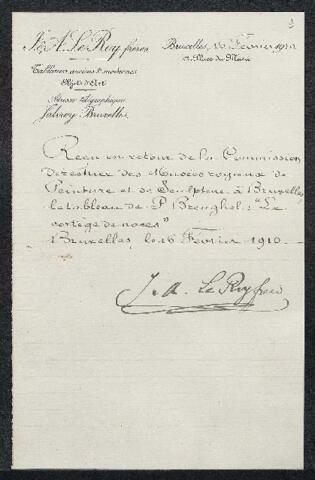 J. & A. Le Roy frères
Bruxelles, 16 Février 1910
Place du Musée
Tableaux anciens & modernes
Objets d'Art
Adresse télégraphique
Jalroy Bruxelles
Reçu en retour de la Commission
directrice des Musées royaux de
Peinture et de Sculpture à Bruxelles
le tableau de P. Breughel: "Le
cortège de noces"
Bruxelles, le 16 Février 1910
J. & A. Le Roy frères